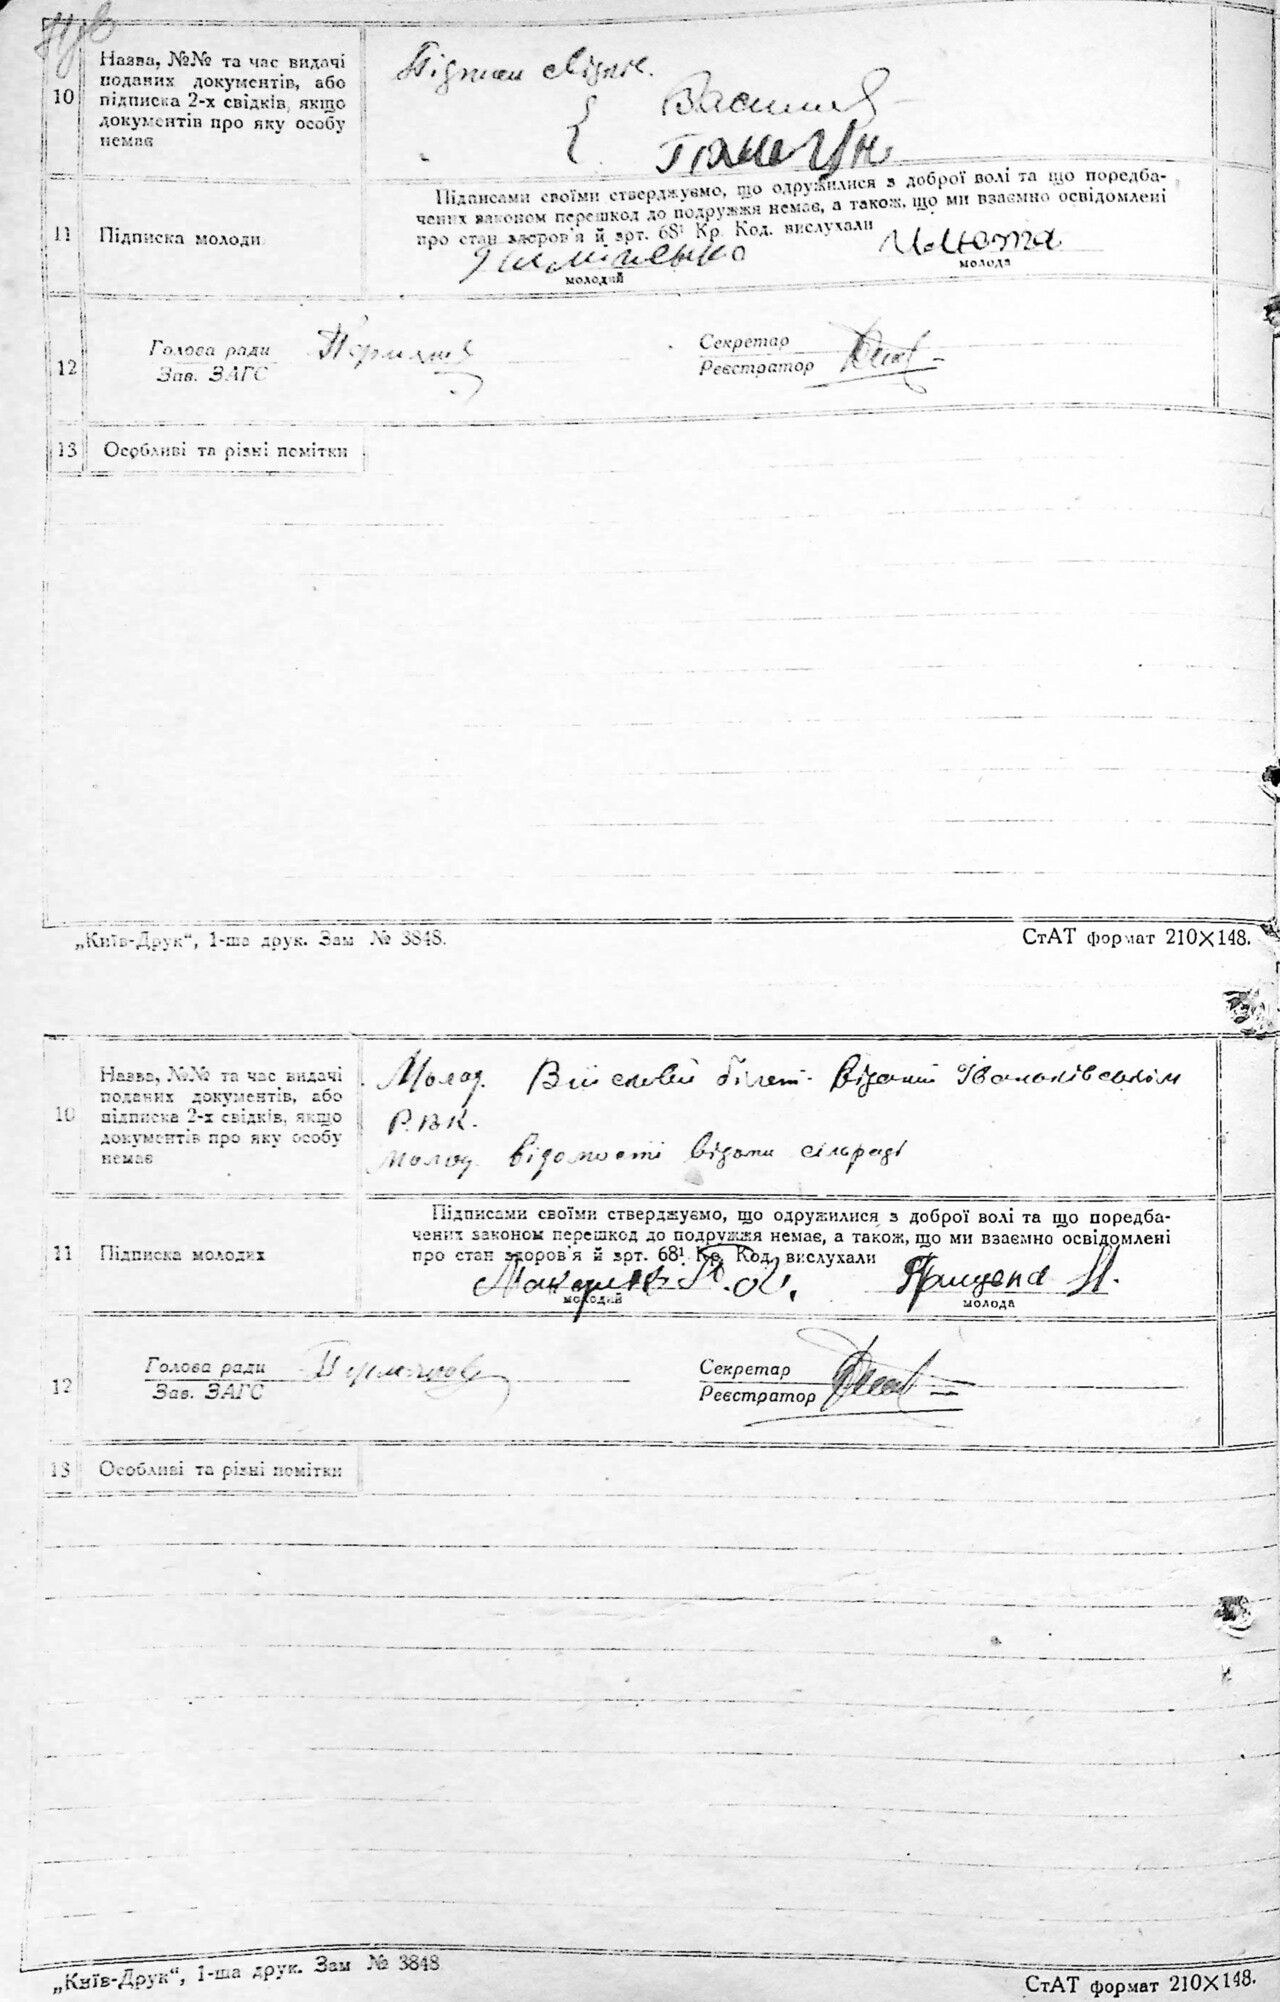 10
Назва, №№ та час видачі
поданих документів, або
підписка 2-х свідків, якщо
документів про яку особу
немає
Підписи свідків.
11
Підписка молоди
Підписами своїми стверджуємо, що одружилися з доброї волі та що поредба-
чених законом перешкод до подружжя немає, а також, що ми взаємно освідомлені
про стан здоров'я й арт. 68¹ Кр. Код. вислухали
молодий
молода
12
Голова ради
Зав. ЗАГС
Секретар
Реєстратор
13
Особливі та різні помітки
„Київ-Друк“, 1-ша друк. Зам № 3848.
СтАТ формат 210×148.
10
Назва, №№ та час видачі
поданих документів, або
підписка 2-х свідків, якщо
документів про яку особу
немає
Молод. Війсковій білет виданий Іванківським
Р.В.К.
Молод. відомості видани сільраді
11
Підписка молодих
Підписами своїми стверджуємо, що одружилися з доброї волі та що поредба-
чених законом перешкод до подружжя немає, а також, що ми взаємно освідомлені
про стан здоров'я й арт. 68¹ Кр. Код. вислухали
молодий
молода
12
Голова ради
Зав. ЗАГС
Секретар
Реєстратор
13
Особливі та різні помітки
„Київ-Друк“, 1-ша друк. Зам № 3848
СтАТ формат 210×148.